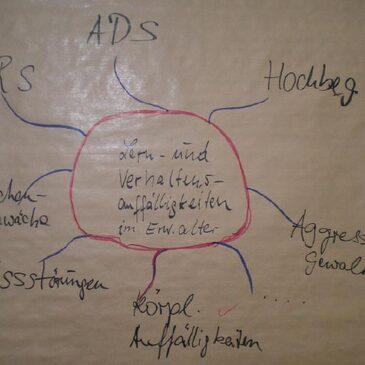 ADS
RS
Hochbeg.
Lern- und
Verhaltens-
auffälligkeiten
im Erw.alter
chen-
wäche
Aggress
Gewal
ssstörungen
.....
Körpl.
Auffälligkeiten